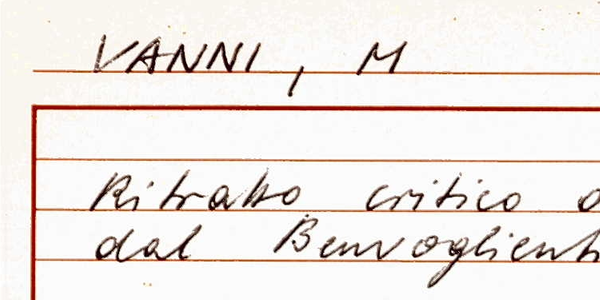 VANNI, M
Ritratto critico
dal Benvoglient